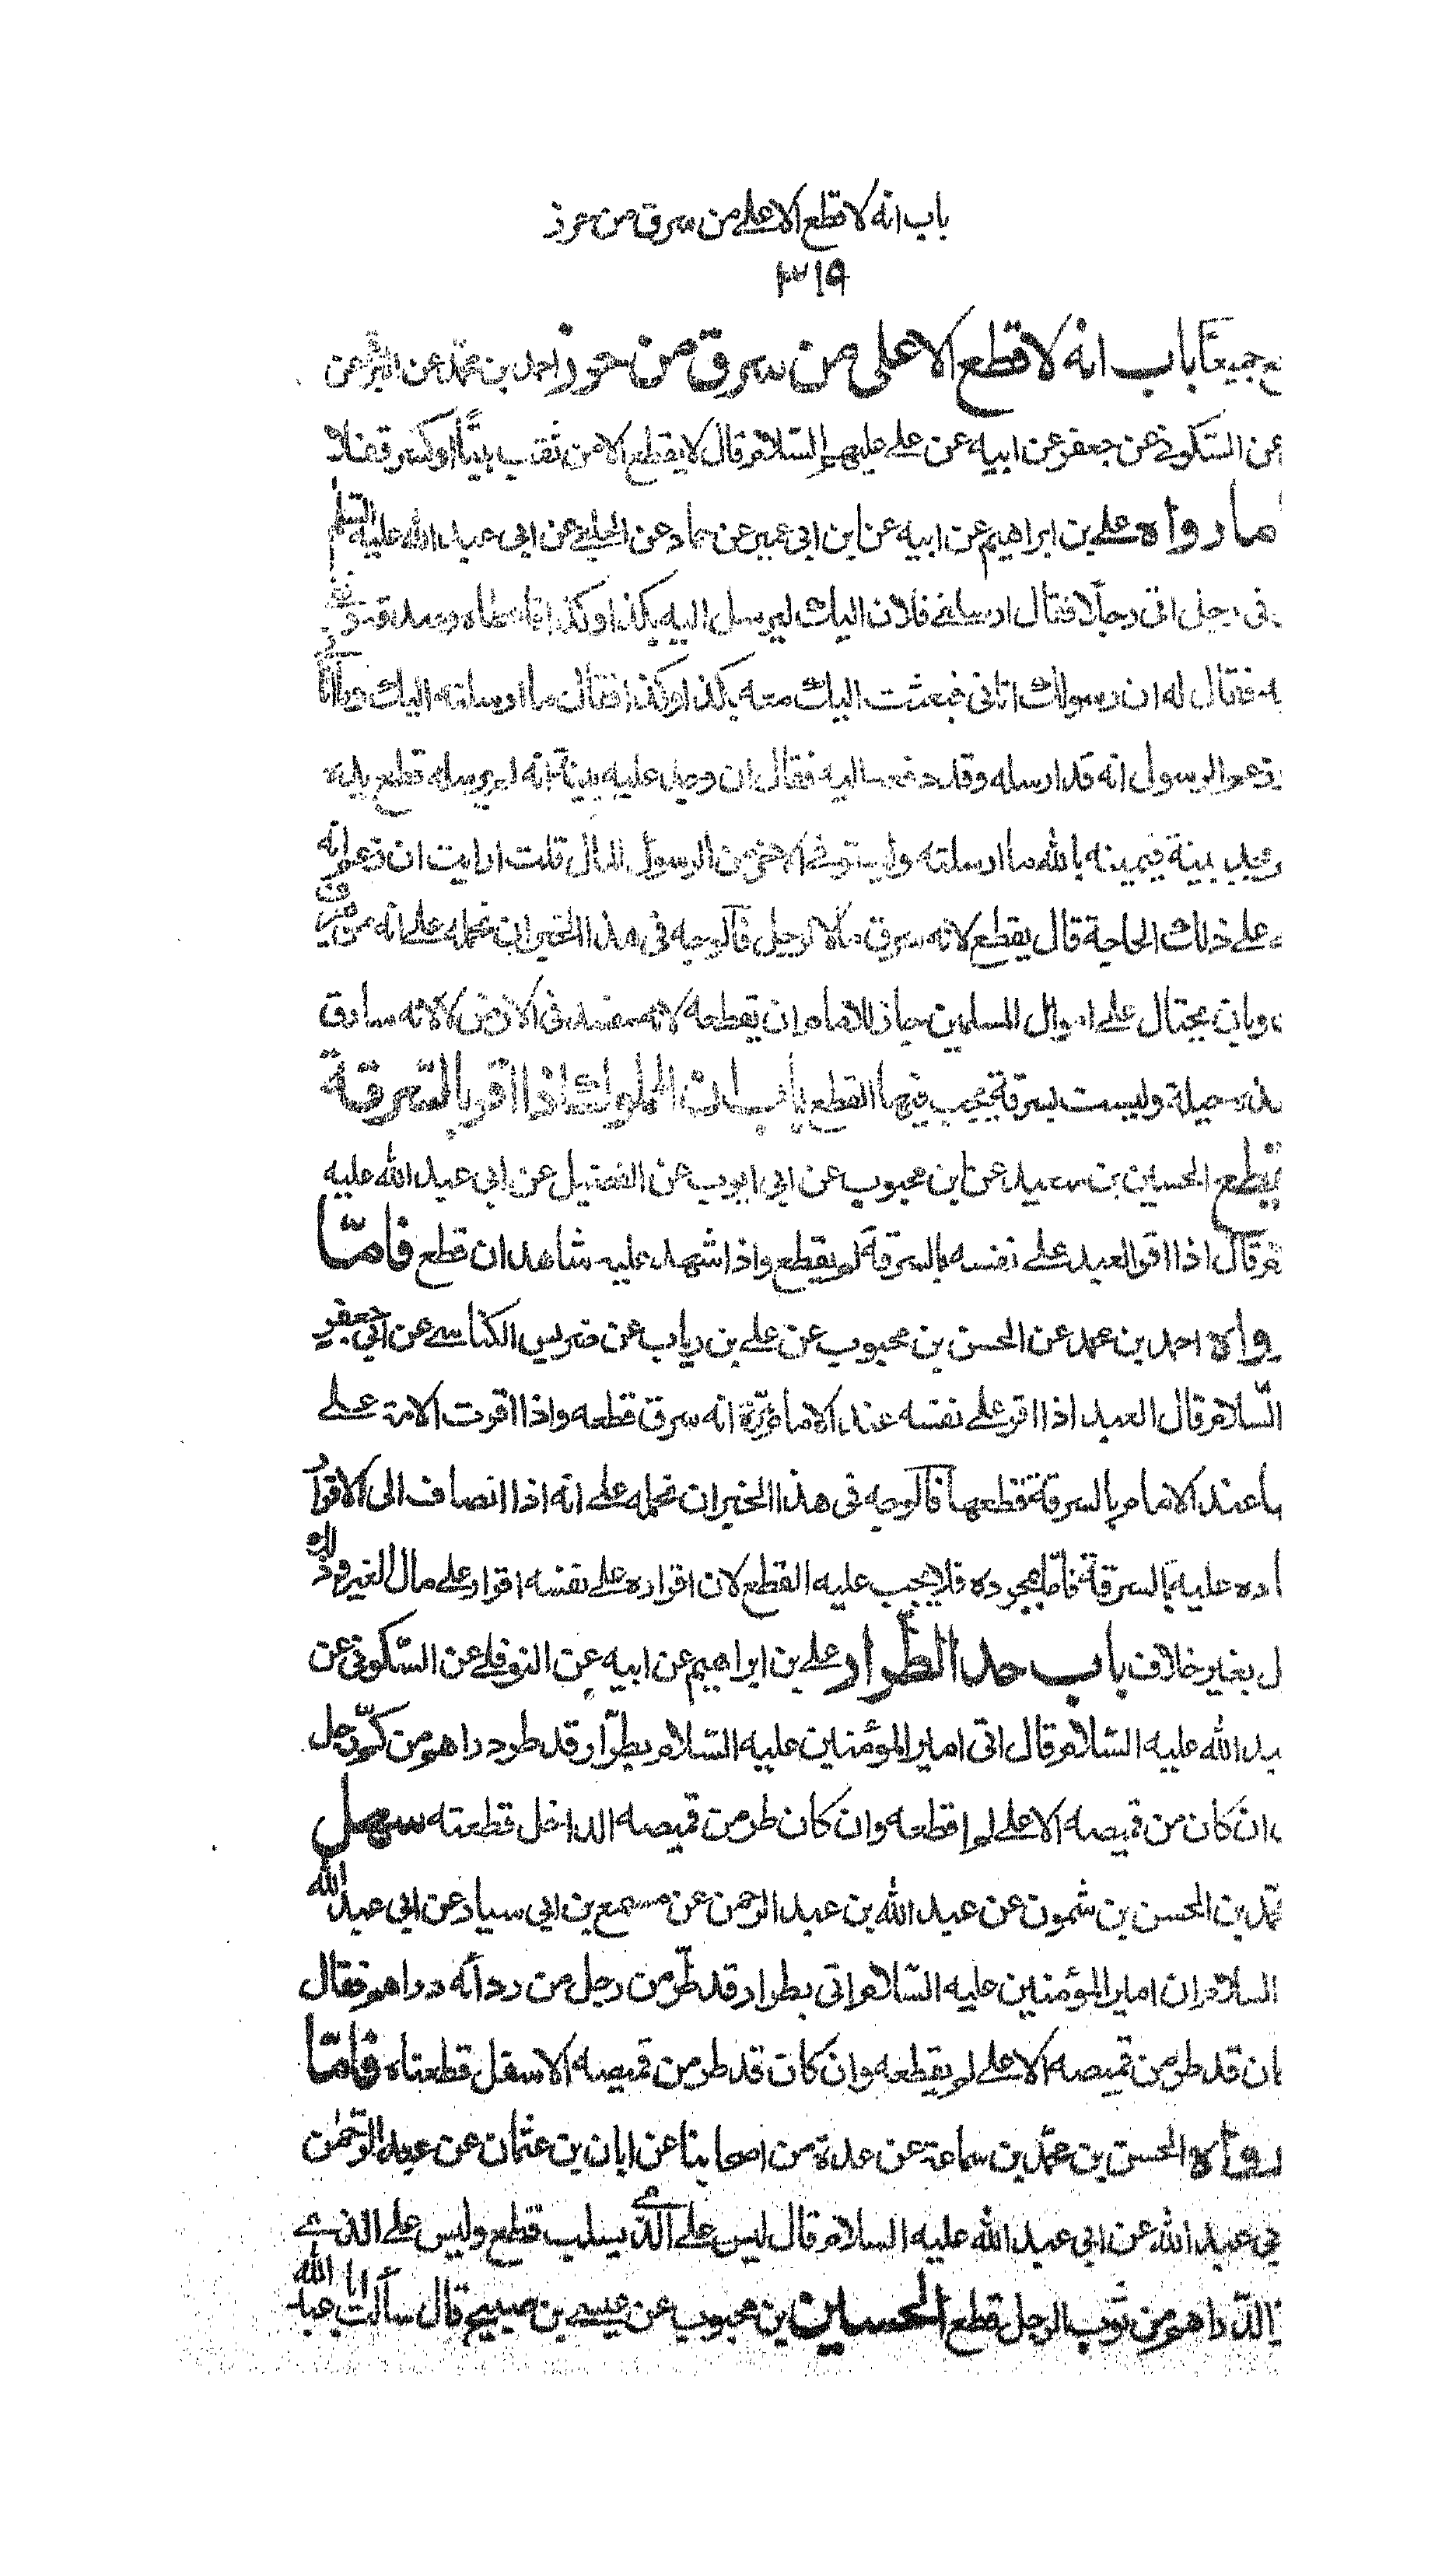 باب انه لا قطع الا على من سرق من حرز
٣١٩
جميعًا باب انه لا قطع الا على من سرق من حرز احمد بن محمد عن البرقى عن
عن السّكونى عن جعفر عن ابيه عن على عليهم السّلام قال لا يقطع الا من ثقب بيتًا او كسر قفلا
ما رواه على بن ابراهيم عن ابيه عن ابن ابى عمير عن حماد عن الحلبى عن ابى عبد الله عليه السلم
فى رجل اتى رجلًا فقال ارسلنى فلان اليك ليرسل اليه بكذا وكذا فاعطاه وصدقه
فقال له ان رسولك اتانى فبعثت اليك معه بكذا وكذا فقال ما ارسلته اليك وما اتانى
زعم الرسول انه قد ارسله وقد دفعه اليه فقال ان وجد عليه بينة انه لم يرسله قطع يده
يجد بينة فيمينه بالله ما ارسلته ويستوفى الاخر من الرسول المال قلت ارايت ان زعم انه
على ذلك الحاجة قال يقطع لانه سرق مال الرجل فالوجه فى هذا الخبر ان نحمله على انه من
وبان يحتال على اموال المسلمين جاز للامام ان يقطعه لانه مفسد فى الارض لا لانه سارق
حيلة وليست بسرقة يجب فيها القطع باب ان المملوك اذا اقر بالسّرقة
يقطع الحسين بن سعيد عن ابن محبوب عن ابى ايوب عن الفضيل عن ابى عبد الله عليه
قال اذا اقر العبد على نفسه بالسرقة لم يقطع واذا شهد عليه شاهدان قطع فامّا
رواه احمد بن محمد عن الحسن بن محبوب عن على بن رياب عن ضريس الكناسى عن ابى جعفر
السّلام قال العبد اذا اقر على نفسه عند الامام مرّة انه سرق قطعه واذا اقرت الامة على
عند الامام بالسرقة قطعها فالوجه فى هذا الخبر ان نحمله على انه اذا انضاف الى الاقرار
ده عليه بالسرقة فاما بمجرده فلا يجب عليه القطع لان اقراره على نفسه اقرار على مال الغير وذلك
ل بغير خلاف باب حد الطّرار على بن ابراهيم عن ابيه عن النوفلى عن السّكونى عن
بد الله عليه السّلام قال اتى امير المؤمنين عليه السّلام بطرّار قد طرد دراهم من كمّ رجل
ان كان من قميصه الاعلى لم اقطعه وان كان طر من قميصه الداخل قطعته سهل
بن الحسن بن شمون عن عبد الله بن عبد الرحمن عن مسمع بن ابى سيار عن ابى عبد الله
السلام ان امير المؤمنين عليه السّلام اتى بطرار قد طرّ من رجل من ردائه دراهم فقال
كان قد طر من قميصه الاعلى لم يقطعه وان كان قد طر من قميصه الاسفل قطعناه فامّا
رواه الحسن بن محمّد بن سماعة عن عدة من اصحابنا عن ابان بن عثمان عن عبد الرّحمن
بى عبد الله عن ابى عبد الله عليه السلام قال ليس على الّذى يسلب قطع وليس على الذى
الدراهم من ثوب الرجل قطع الحسين بن محبوب عن عيسى بن صبيح قال سألت ابا عبد الله